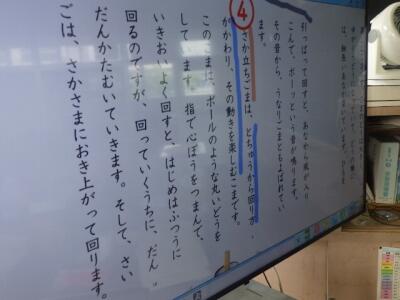 引っぱって回すと、あなから風が入り
こんで、ボーッという音が鳴ります。
その音から、うなりごまともよばれてい
ます。
④
さか立ちごまは、とちゅうから回り方
がかわり、その動きを楽しむこまです。
このこまは、ボールのような丸いどうを
しています。指で心ぼうをつまんで、
いきおいよく回すと、はじめはふつうに
回るのですが、回っていくうちに、だん
だんかたむいていきます。そして、さい
ごは、さかさまにおき上がって回ります。